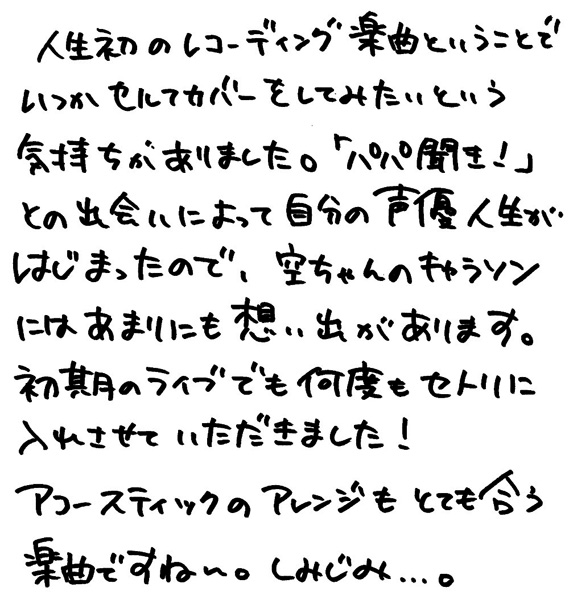 人生初のレコーディング楽曲ということで
いつかセルフカバーをしてみたいという
気持ちがありました。「パパ聞き!」
との出会いによって自分の声優人生が
はじまったので、空ちゃんのキャラソン
にはあまりにも想い出があります。
初期のライブでも何度もセトリに
入れさせていただきました!
アコースティックのアレンジもとても合う
楽曲ですね〜。しみじみ...。